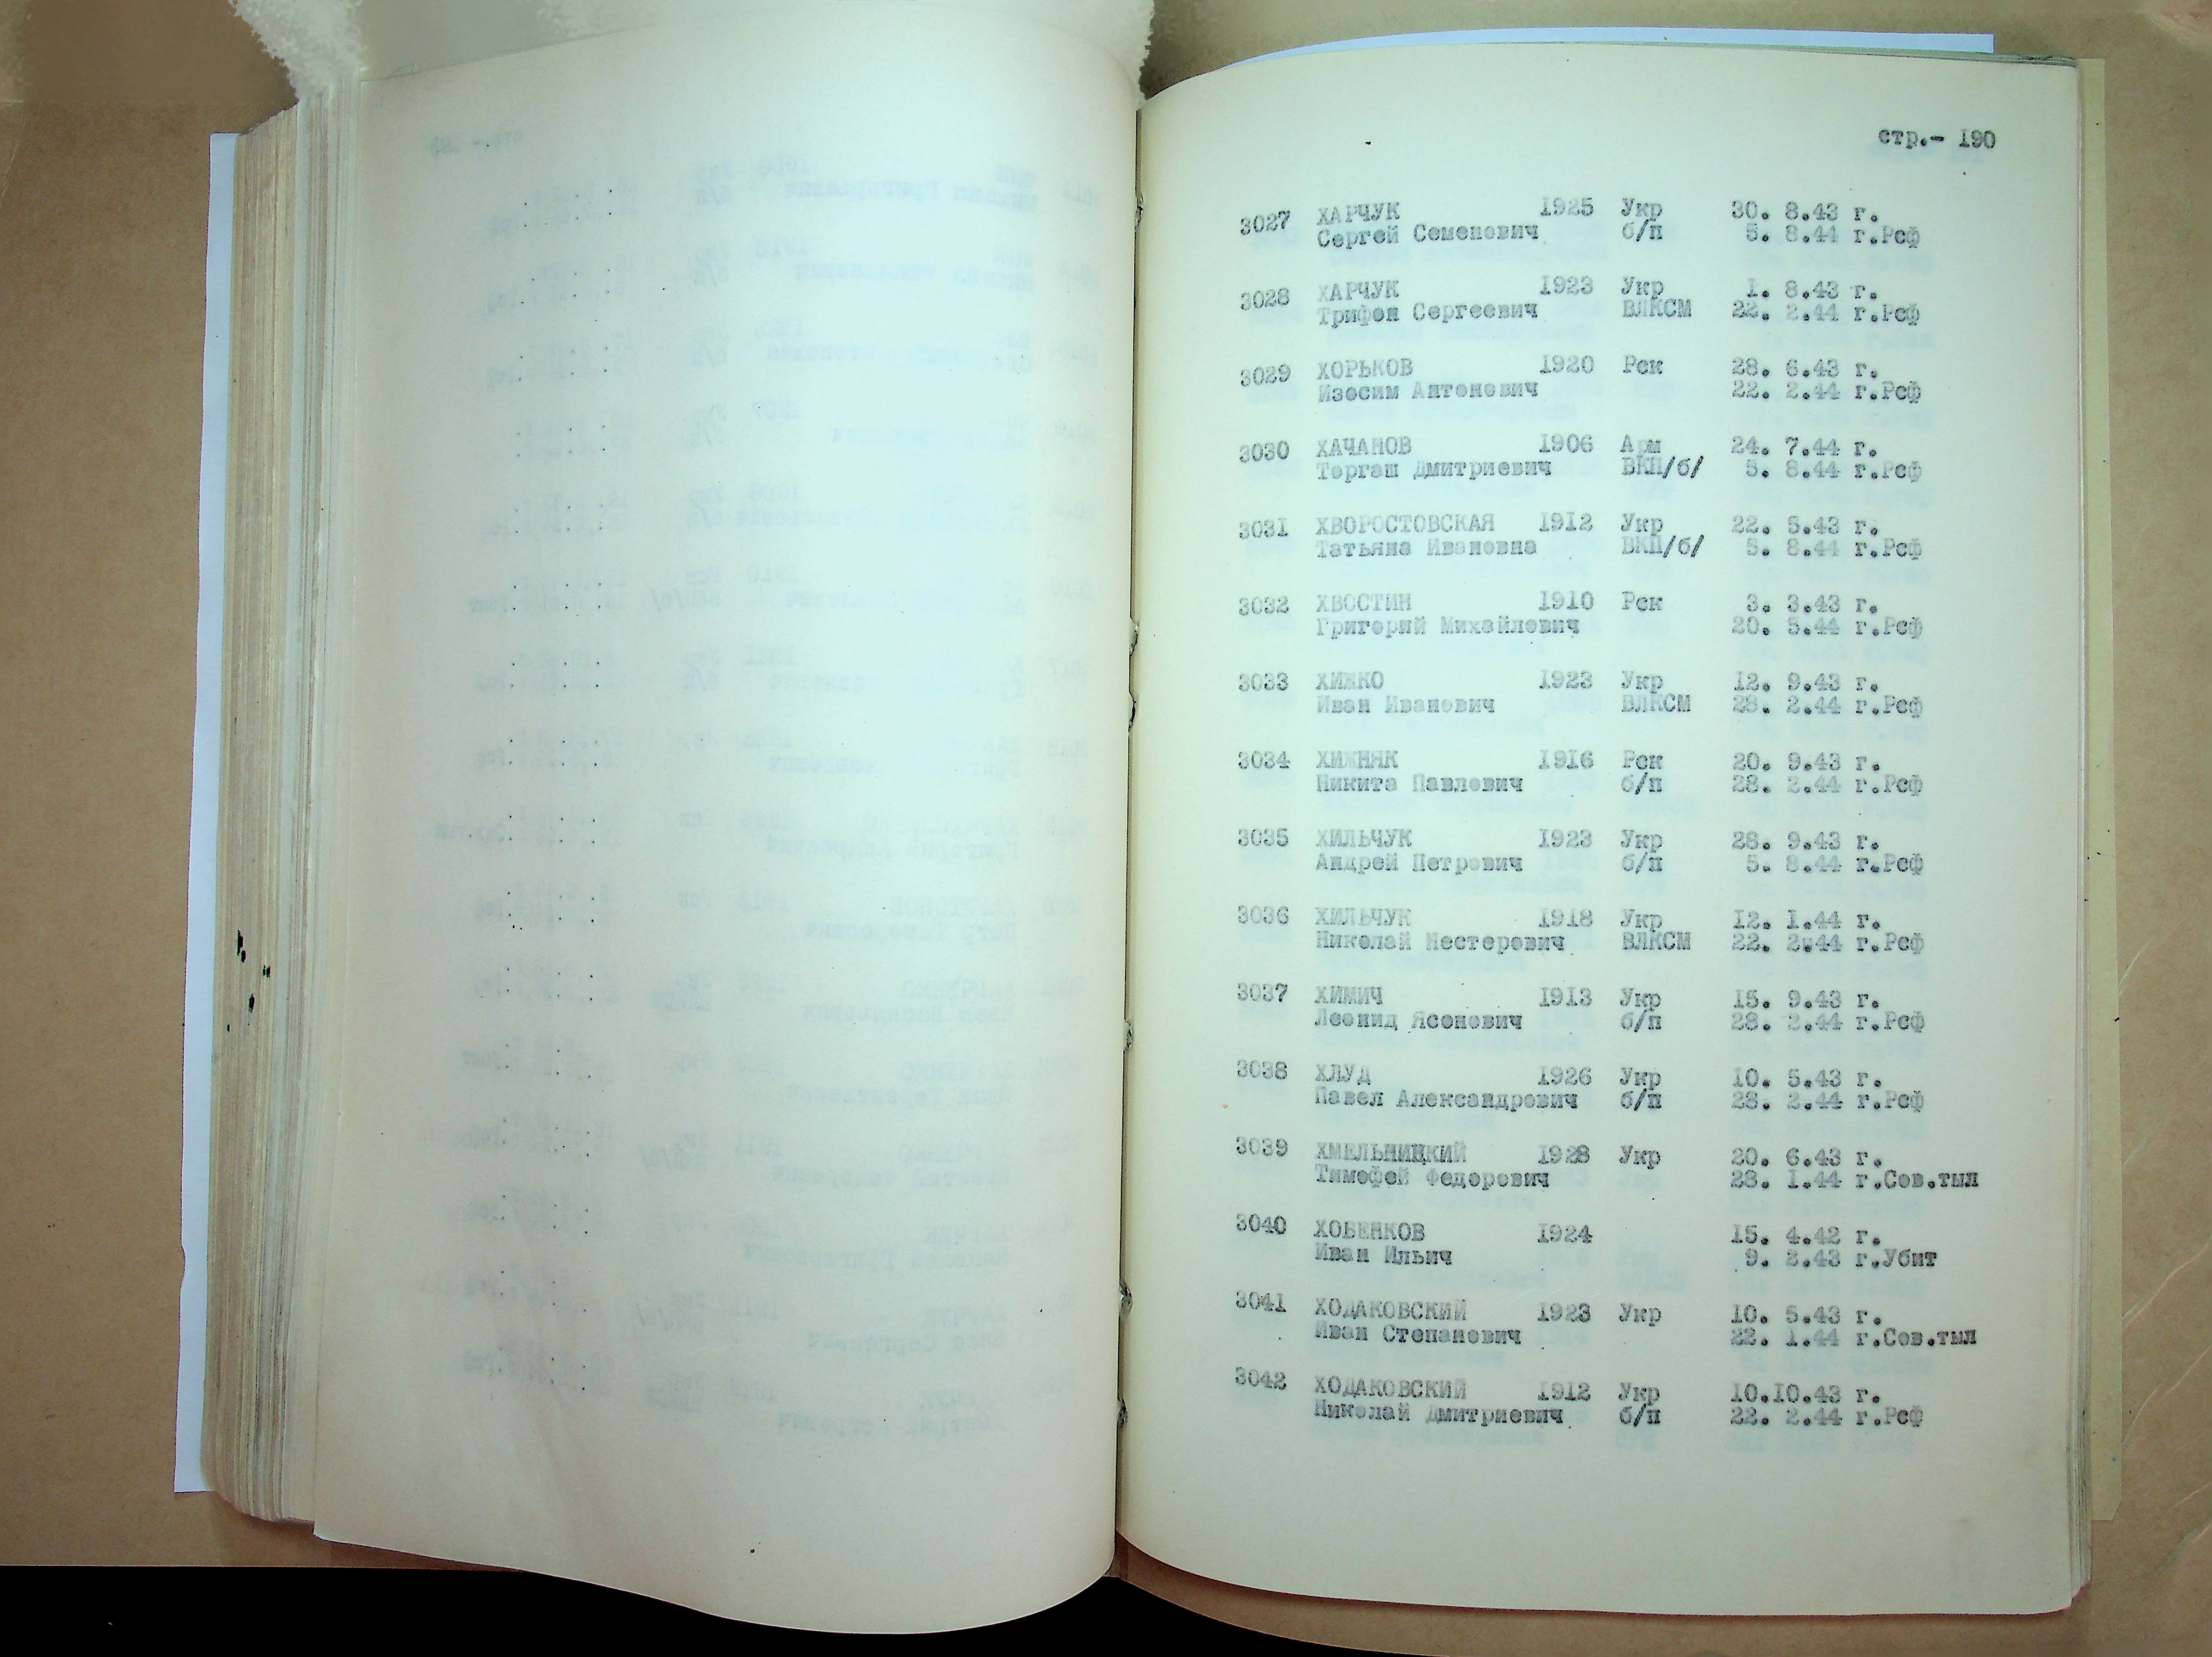 стр.- 190
3027 ХАРЧУК 1925 Укр 30. 8.43 г.
Сергей Семенович б/п 5. 8.44 г.Рсф
3028 ХАРЧУК 1923 Укр 1. 8.43 г.
Трифон Сергеевич ВЛКСМ 22. 2.44 г.Рсф
3029 ХОРЬКОВ 1920 Рск 28. 6.43 г.
Изосим Антонович 22. 2.44 г.Рсф
3030 ХАЧАНОВ 1906 Арм 24. 7.44 г.
Торгаш Дмитриевич ВКП/б/ 5. 8.44 г.Рсф
3031 ХВОРОСТОВСКАЯ 1912 Укр 22. 5.43 г.
Татьяна Ивановна ВКП/б/ 5. 8.44 г.Рсф
3032 ХВОСТИН 1910 Рск 3. 3.43 г.
Григорий Михайлович 20. 5.44 г.Рсф
3033 ХИЖКО 1923 Укр 12. 9.43 г.
Иван Иванович ВЛКСМ 28. 2.44 г.Рсф
3034 ХИЖНЯК 1916 Рск 20. 9.43 г.
Никита Павлович б/п 28. 2.44 г.Рсф
3035 ХИЛЬЧУК 1923 Укр 28. 9.43 г.
Андрей Петрович б/п 5. 8.44 г.Рсф
3036 ХИЛЬЧУК 1918 Укр 12. 1.44 г.
Николай Нестерович ВЛКСМ 22. 2.44 г.Рсф
3037 ХИМИЧ 1913 Укр 15. 9.43 г.
Леонид Ясонович б/п 28. 2.44 г.Рсф
3038 ХЛУД 1926 Укр 10. 5.43 г.
Павел Александрович б/п 28. 2.44 г.Рсф
3039 ХМЕЛЬНИЦКИЙ 1928 Укр 20. 6.43 г.
Тимофей Федорович 28. 1.44 г.Сов.тыл
3040 ХОБЕНКОВ 1924 15. 4.42 г.
Иван Ильич 9. 2.43 г.Убит
3041 ХОДАКОВСКИЙ 1923 Укр 10. 5.43 г.
Иван Степанович 22. 1.44 г.Сов.тыл
3042 ХОДАКОВСКИЙ 1912 Укр 10.10.43 г.
Николай Дмитриевич б/п 22. 2.44 г.Рсф